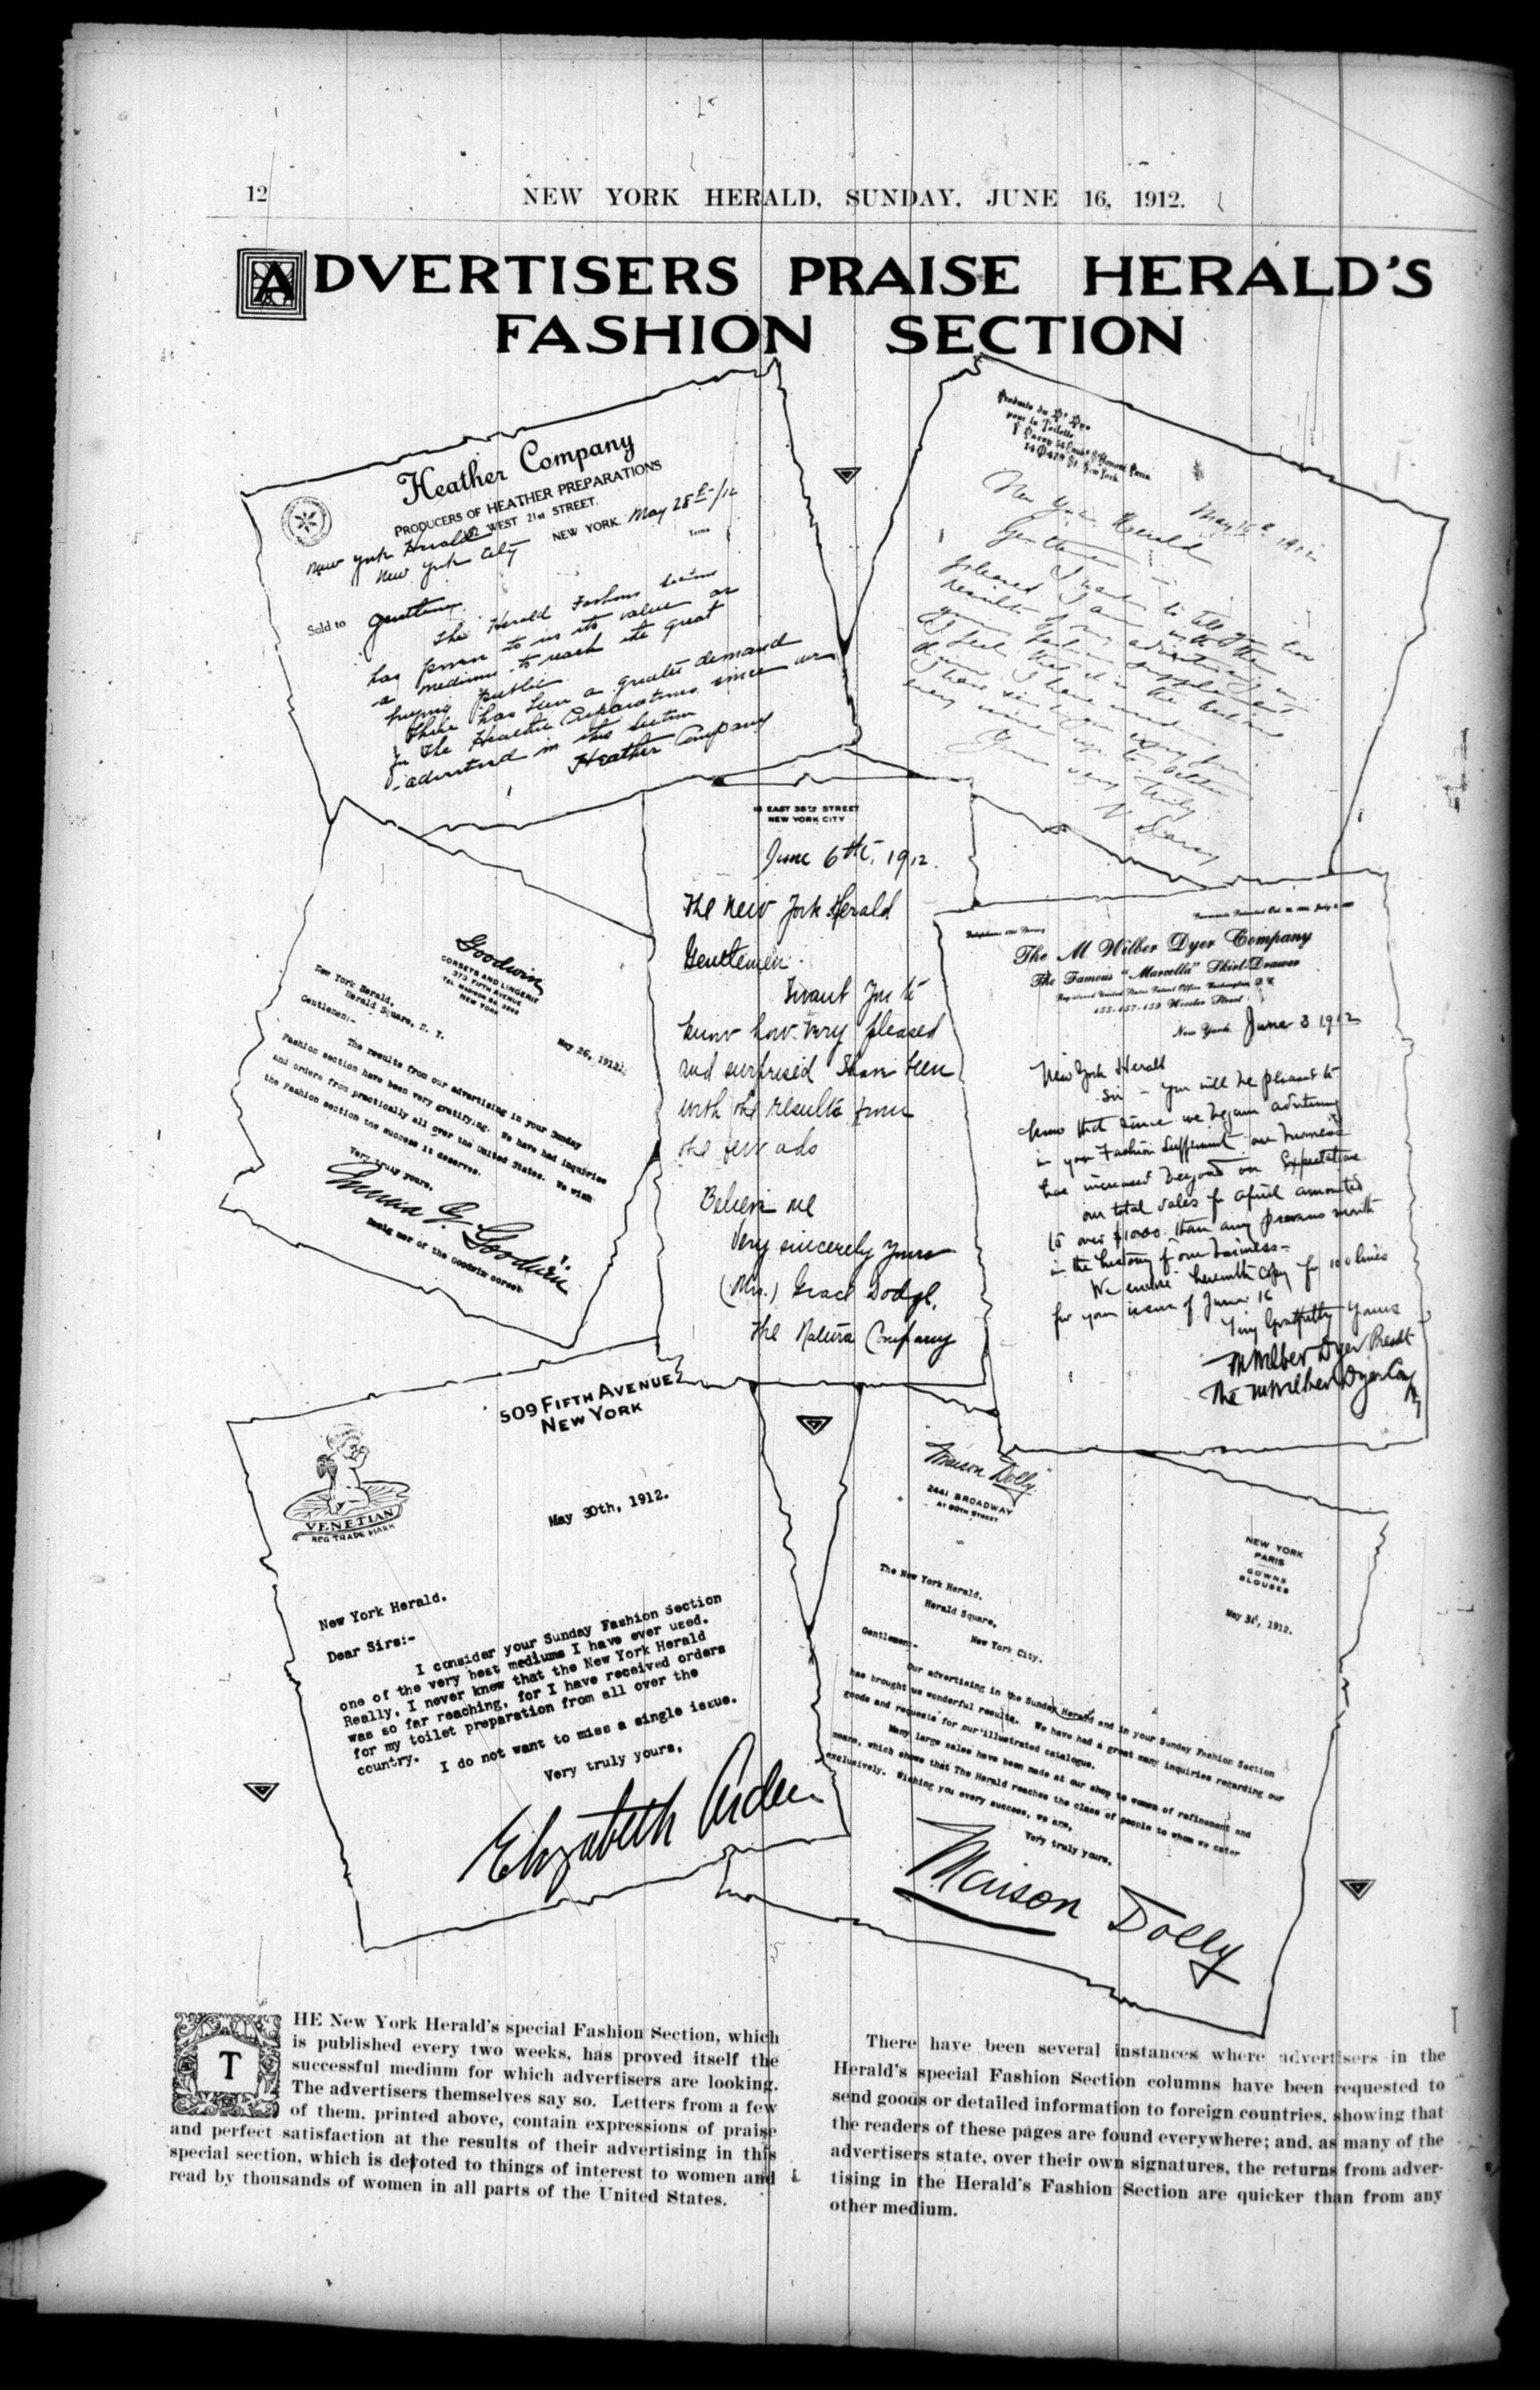 12
NEW YORK HERALD, SUNDAY, JUNE 16, 1912.
ADVERTISERS PRAISE HERALD'S
FASHION SECTION
Heather Company
PRODUCERS OF HEATHER PREPARATIONS
WEST 21st STREET.
NEW YORK. May 28th/12
New York Herald
New York City
Terms
Sold to
Gentlemen
The Herald Fashion Section
has proven to us its value as
a medium to reach the great
buying public
There has been a greater demand
for the Heather Preparations since we
advertised in this section
Heather Company
pour la Toilette
New York
May 1912
New York Herald
Gentlemen
I want to tell you how
pleased I am with the
results of my advertising in
your fashion supplement
I feel that it is the best
I have used
Yours very truly
V. Darsy
EAST 38TH STREET
NEW YORK CITY
June 6th, 1912.
The New York Herald
Gentlemen.
I want you to
know how very pleased
and surprised I have been
with the results from
the few ads
Believe me
Very sincerely yours
(Mrs.) Grace Dodge.
The Natura Company
Goodwin
CORSETS AND LINGERIE
373 FIFTH AVENUE
NEW YORK
New York Herald,
Herald Square, N. Y.
May 26, 1912.
Gentlemen:-
The results from our advertising in your Sunday
Fashion section have been very gratifying. We have had inquiries
and orders from practically all over the United States. We wish
the Fashion section the success it deserves.
Very truly yours,
Goodwin
of the Goodwin corset
The M. Wilber Dyer Company
The Famous "Marcella" Skirt-Drawer
455-457-459 Wooster Street
New York June 3 1912
New York Herald
Sir - You will be pleased to
know that since we began advertising
in your Fashion Supplement our business
has increased beyond our expectation
our total sales for April amounted
to over $1000. than any previous month
in the history of our business-
We enclose herewith copy for 100 lines
for your issue of June 16
Very Gratefully Yours
M Wilber Dyer Presdt
The M Wilber Dyer Co
509 FIFTH AVENUE
NEW YORK
VENETIAN
REG TRADE MARK
May 30th, 1912.
New York Herald.
Dear Sirs:-
I consider your Sunday Fashion Section
one of the very best mediums I have ever used.
Really, I never knew that the New York Herald
was so far reaching, for I have received orders
for my toilet preparation from all over the
country.
I do not want to miss a single issue.
Very truly yours,
Elizabeth Arden
Maison Dolly
2441 BROADWAY
AT 90TH STREET
NEW YORK
PARIS
GOWNS
BLOUSES
May 31, 1912.
The New York Herald,
Herald Square,
New York City.
Gentlemen:-
Our advertising in the Sunday Herald and in your Sunday Fashion Section
has brought us wonderful results. We have had a great many inquiries regarding our
goods and requests for our illustrated catalogue.
Many large sales have been made at our shop to women of refinement and
means, which shows that The Herald reaches the class of people to whom we cater
exclusively. Wishing you every success, we are,
Very truly yours,
Maison Dolly
THE New York Herald's special Fashion Section, which
is published every two weeks, has proved itself the
successful medium for which advertisers are looking.
The advertisers themselves say so. Letters from a few
of them, printed above, contain expressions of praise
and perfect satisfaction at the results of their advertising in this
special section, which is devoted to things of interest to women and
read by thousands of women in all parts of the United States.
There have been several instances where advertisers in the
Herald's special Fashion Section columns have been requested to
send goods or detailed information to foreign countries, showing that
the readers of these pages are found everywhere; and, as many of the
advertisers state, over their own signatures, the returns from adver-
tising in the Herald's Fashion Section are quicker than from any
other medium.